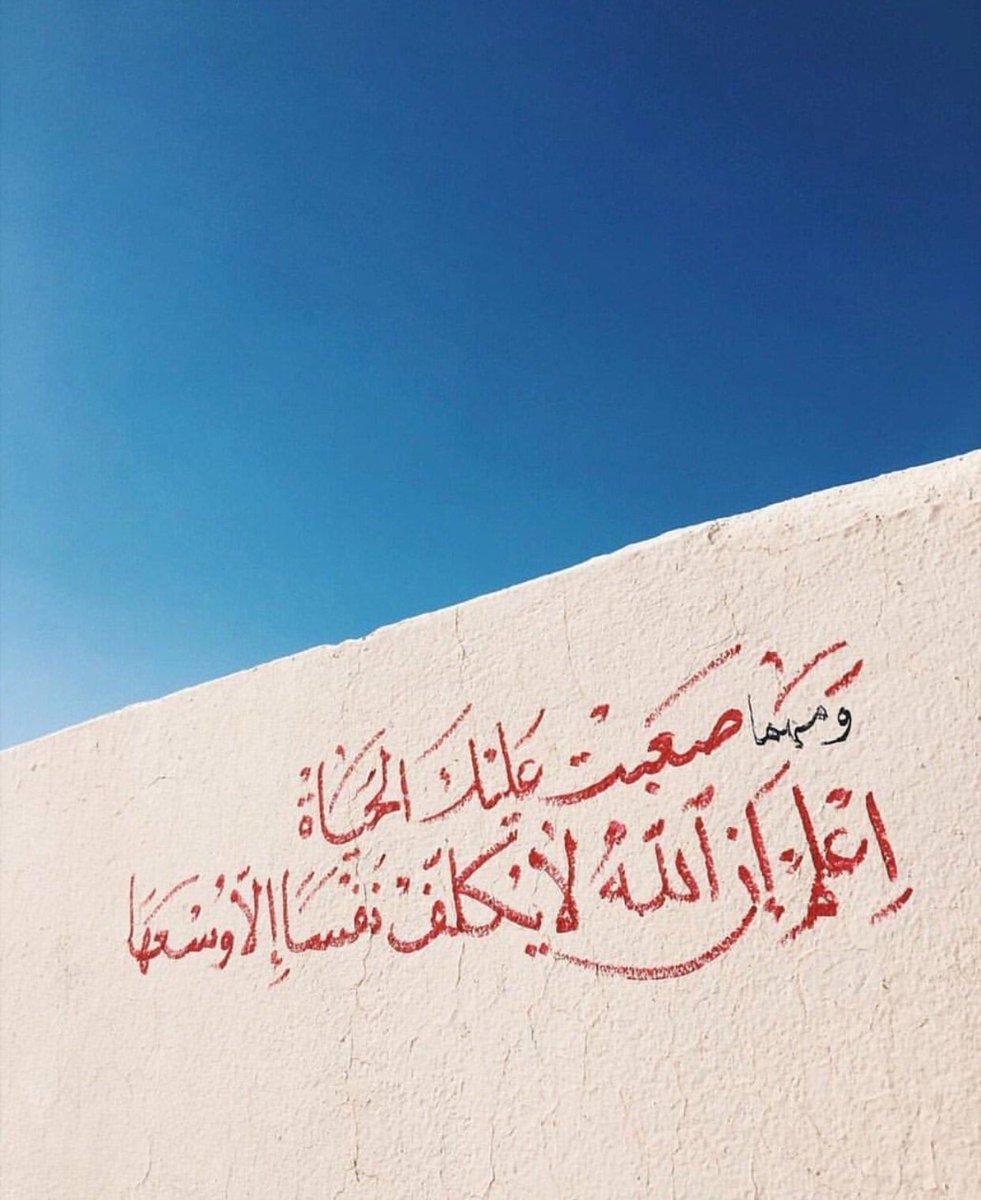 ومهما صعبت عليك الحياة
اعلم إن الله لا يكلف نفسا إلا وسعها